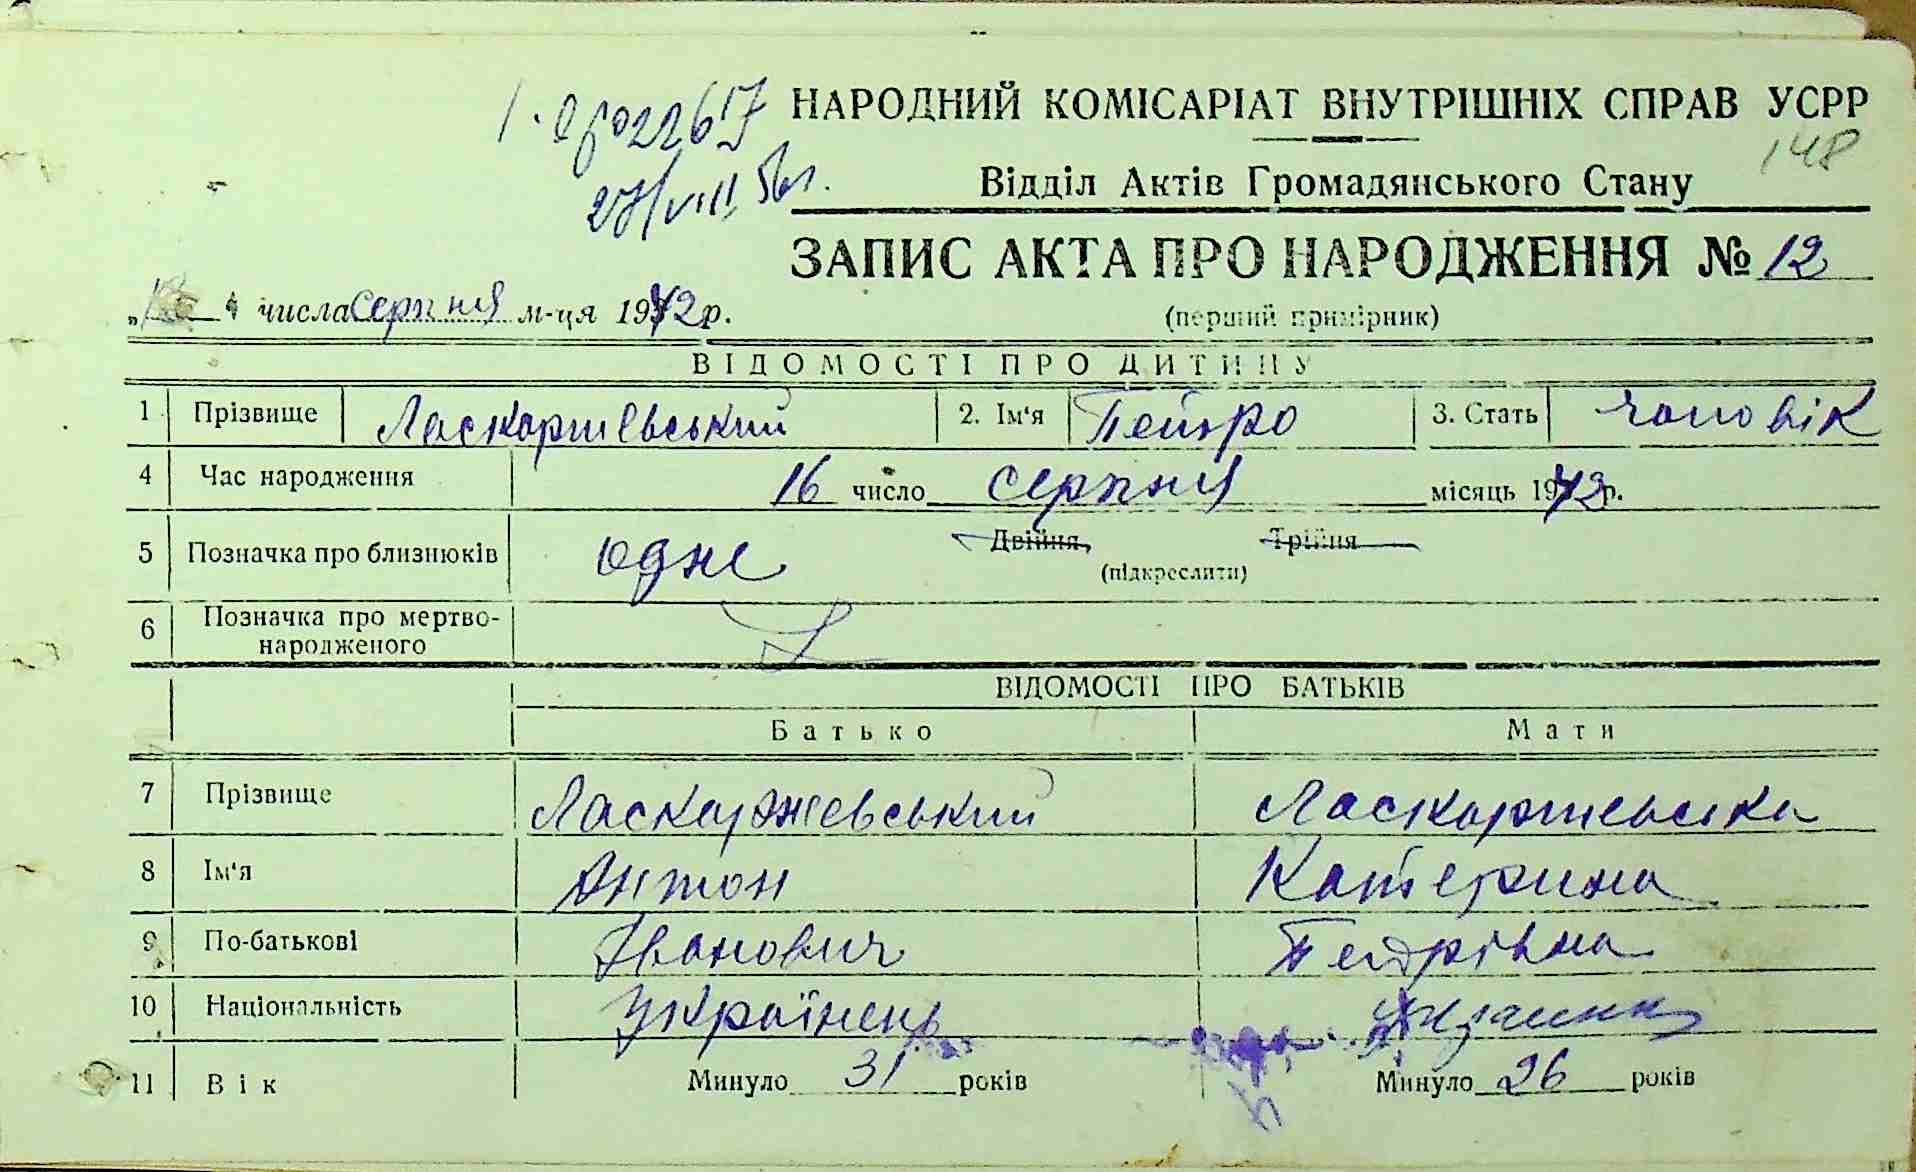 НАРОДНИЙ КОМІСАРІАТ ВНУТРІШНІХ СПРАВ УСРР
148
27/VIII 56 г.
Відділ Актів Громадянського Стану
ЗАПИС АКТА ПРО НАРОДЖЕННЯ № 12
" числа серпня м-ця 1942 р.
(перший примірник)
ВІДОМОСТІ ПРО ДИТИНУ
1 Прізвище Ласкаржевський 2. Ім'я Петро 3. Стать чоловік
4 Час народження 16 число серпня місяць 1942 р.
5 Позначка про близнюків одне Двійня, Трійня
(підкреслити)
6 Позначка про мертво-
народженого
ВІДОМОСТІ ПРО БАТЬКІВ
Батько Мати
7 Прізвище Ласкаржевський Ласкаржевська
8 Ім'я Антон Катерина
9 По-батькові Іванович Петрівна
10 Національність Українець
11 Вік Минуло 31 років Минуло 26 років